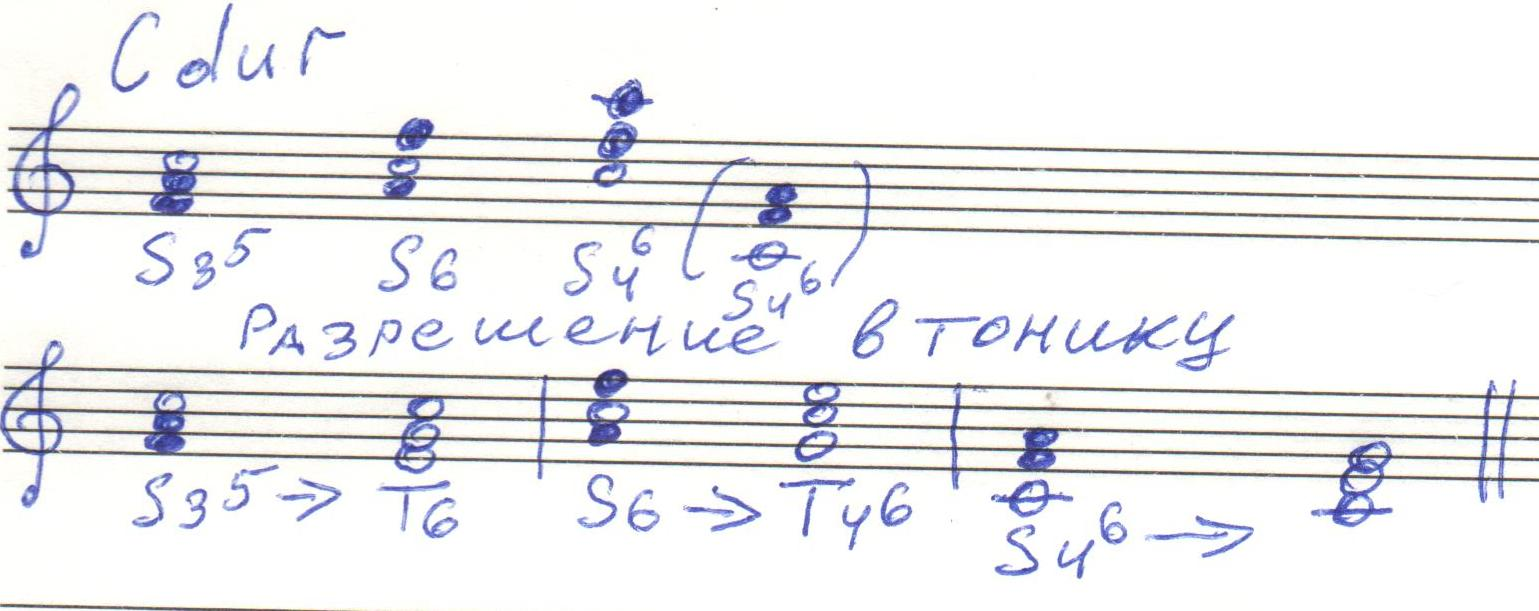 C dur
S3 5 S6 S4 6 ( S4 6 )
Разрешение в тонику
S3 5 → T6 S6 → T4 6 S4 6 →